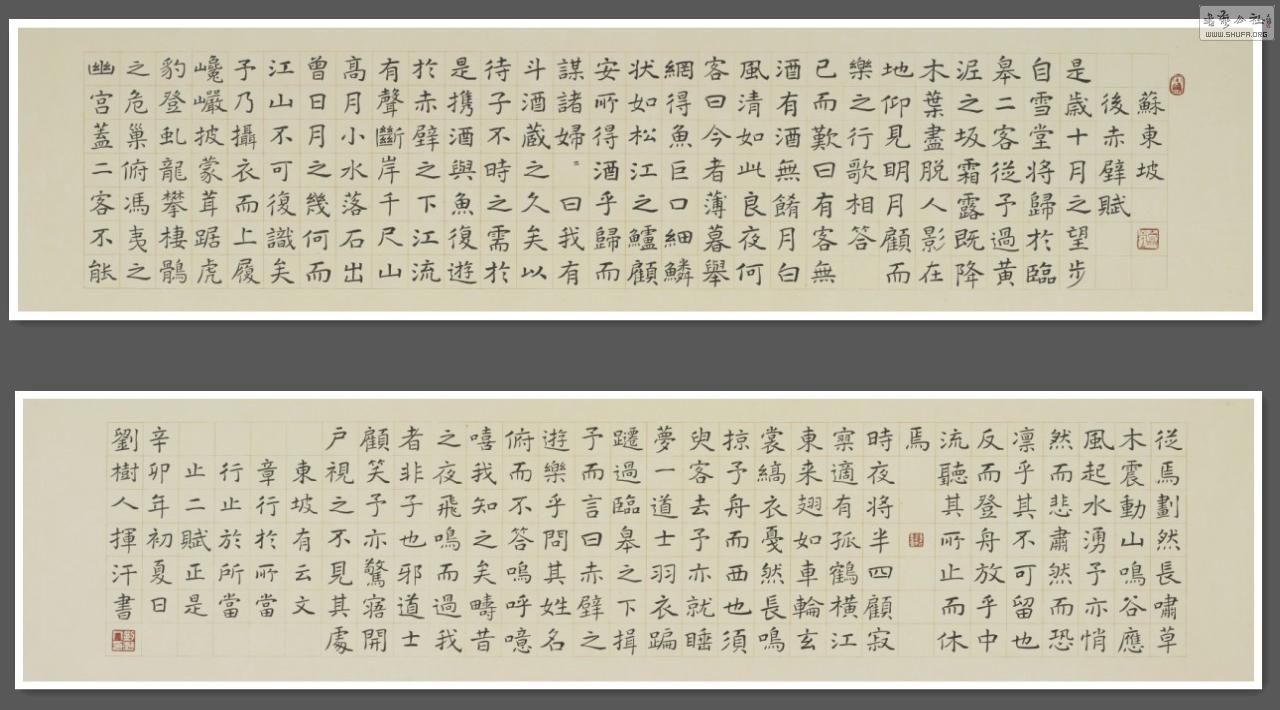 蘇東坡
後赤壁賦
是歲十月之望步
自雪堂將歸於臨
皋二客從予過黃
泥之坂霜露既降
木葉盡脫人影在
地仰見明月顧而
樂之行歌相答
已而歎曰有客無
酒有酒無餚月白
風清如此良夜何
客曰今者薄暮舉
網得魚巨口細鱗
状如松江之鱸顧
安所得酒乎歸而
謀諸婦〻曰我有
斗酒蔵之久矣以
待子不時之需於
是携酒與魚復遊
於赤壁之下江流
有聲斷岸千尺山
高月小水落石出
曾日月之幾何而
江山不可復識矣
予乃攝衣而上履
巉巖披蒙茸踞虎
豹登虬龍攀棲鶻
之危巢俯馮夷之
幽宮蓋二客不能
從焉劃然長嘯草
木震動山鳴谷應
風起水湧予亦悄
然而悲肅然而恐
凛乎其不可留也
反而登舟放乎中
流聽其所止而休
焉
時夜將半四顧寂
寞適有孤鶴橫江
東来翅如車輪玄
裳縞衣戞然長鳴
掠予舟而西也須
臾客去予亦就睡
夢一道士羽衣蹁
躚過臨皋之下揖
予而言曰赤壁之
遊樂乎問其姓名
俯而不答嗚呼噫
嘻我知之矣疇昔
之夜飛鳴而過我
者非子也邪道士
顧笑予亦驚寤開
戶視之不見其處
東坡有云文
章行於所當
行止於所當
止二賦正是
辛卯年初夏日
劉樹人揮汗書
WWW.SHUFA.ORG